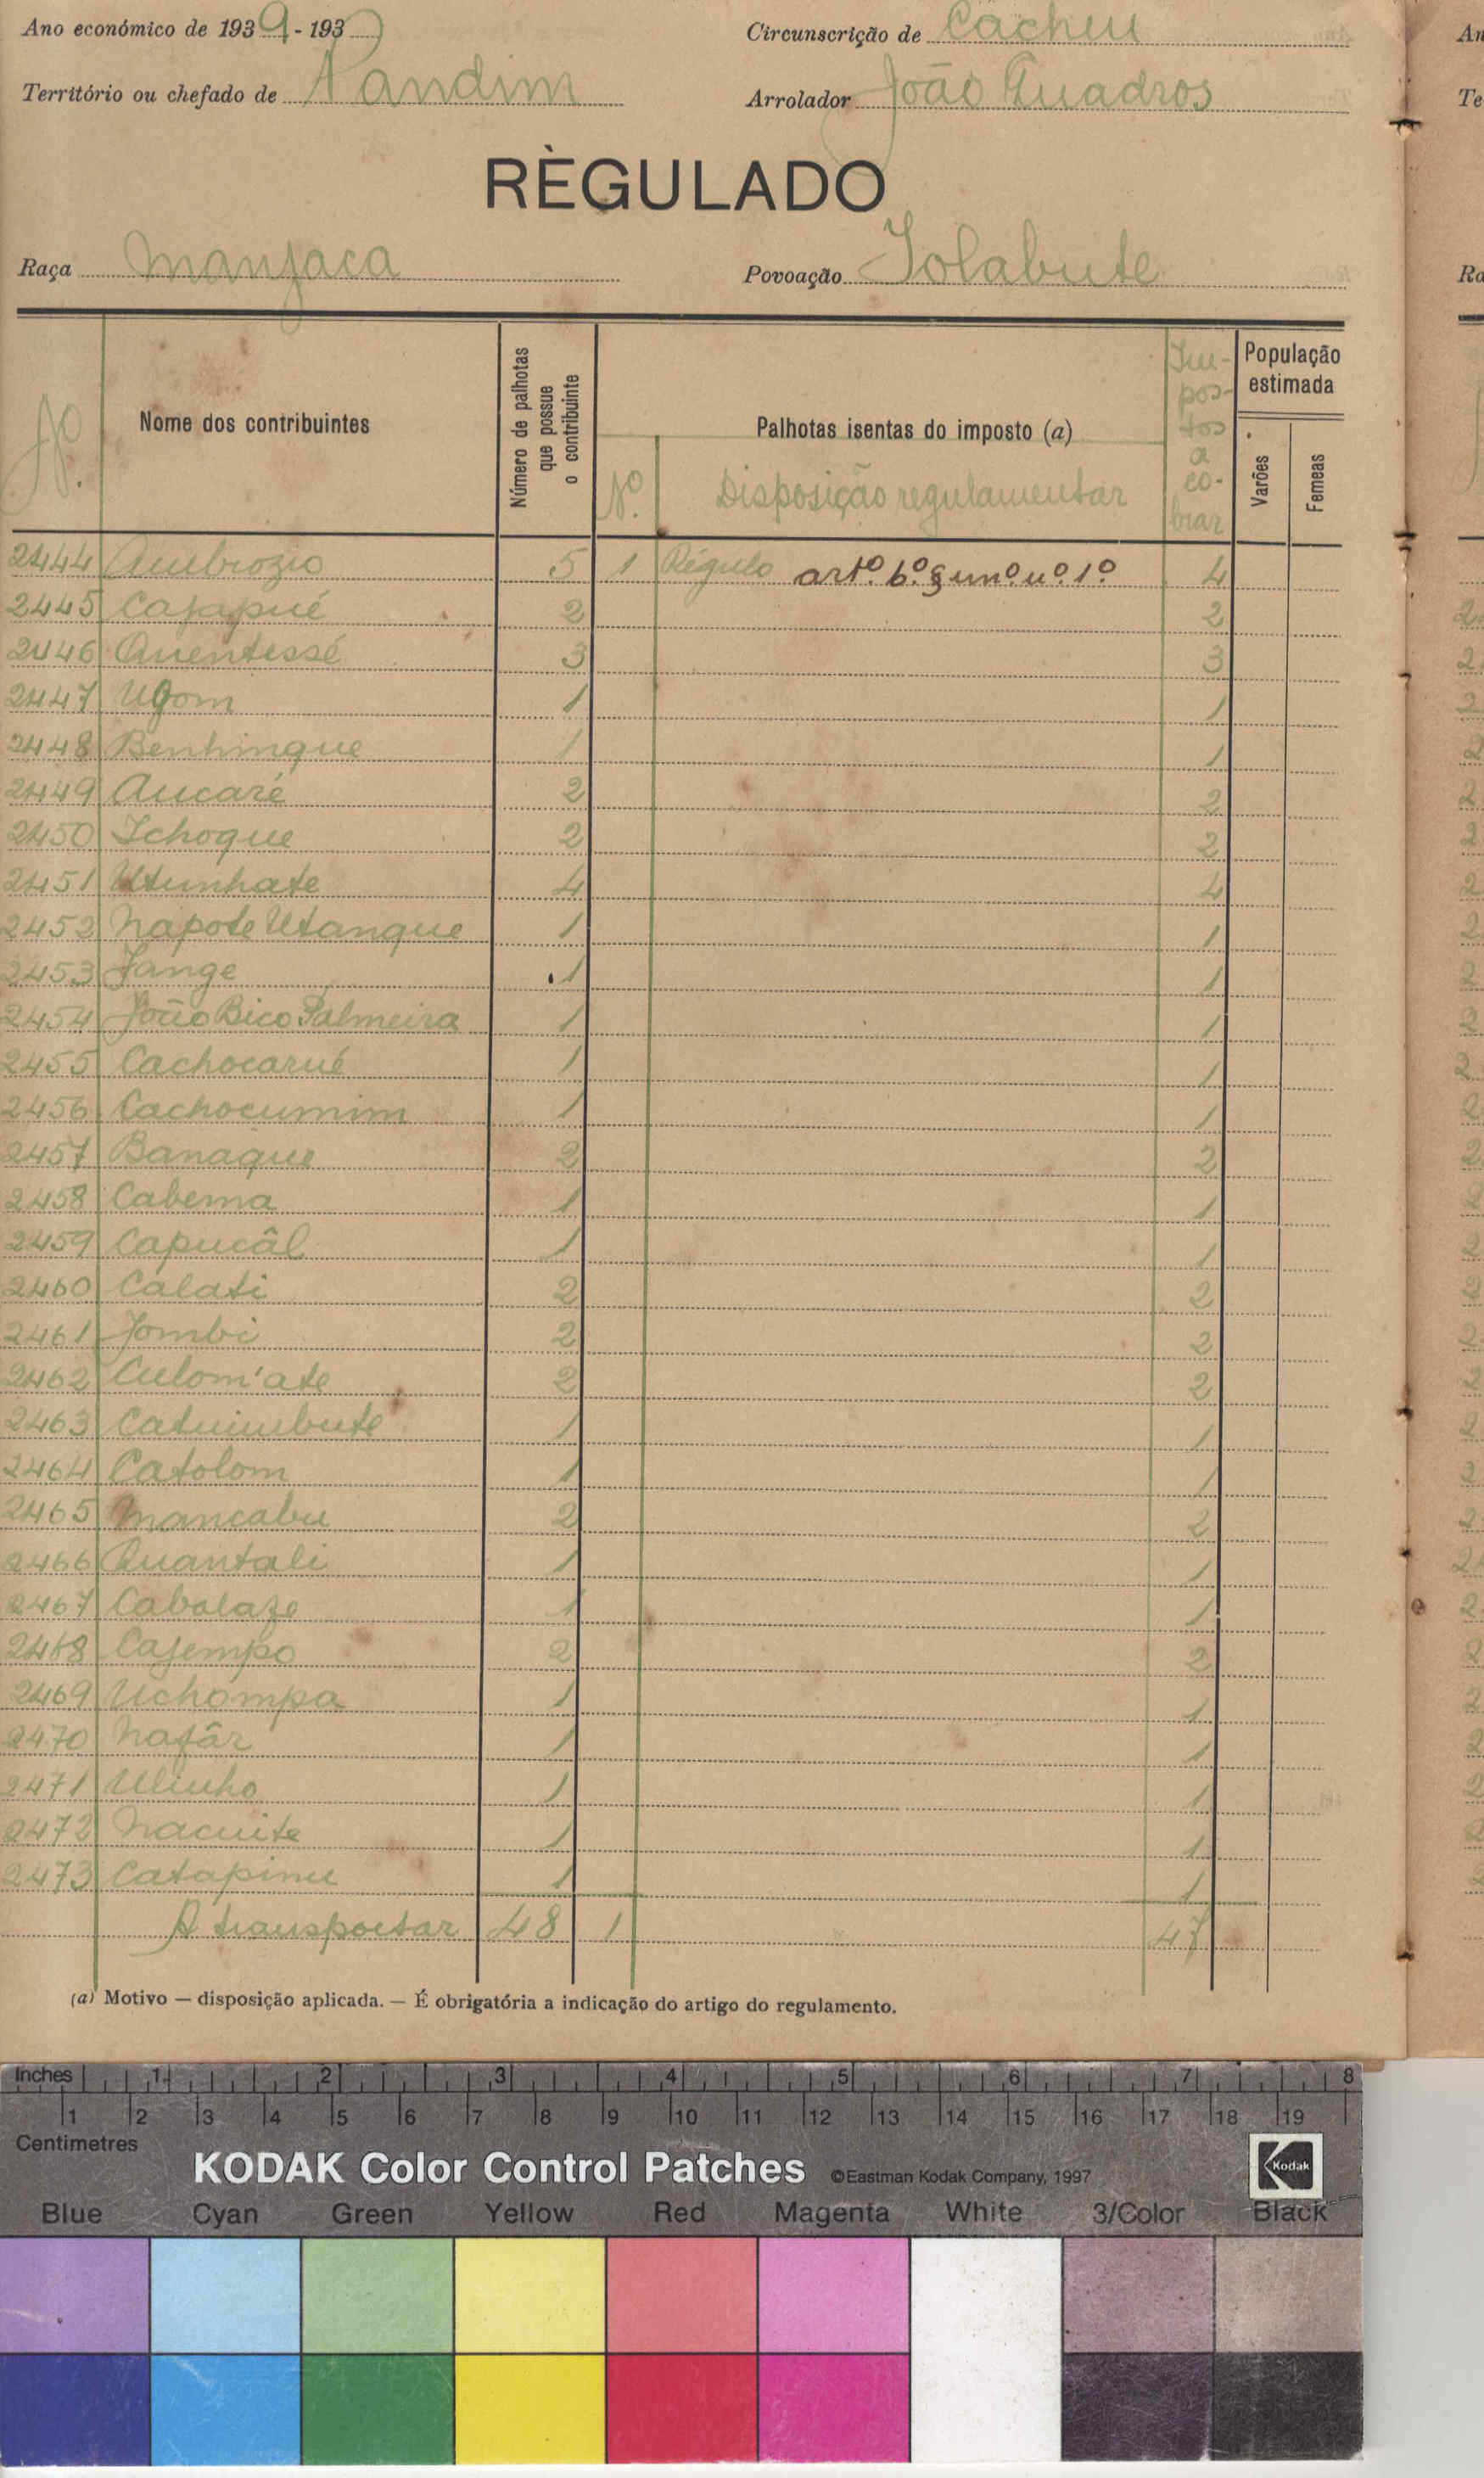 Ano económico de 1939-193
Circunscrição de Cacheu
Território ou chefado de Pandim
Arrolador João Quadros
RÈGULADO
Raça manjaca
Povoação Jolabute
Nº.
Nome dos contribuintes
Número de palhotas que possue o contribuinte
Palhotas isentas do imposto (a)
Nº.
Disposição regulamentar
Im-
pos-
tos
a
co-
brar
População estimada
Varões
Femeas
2444 Ambrozio 5 1 Régulo artº. 6.º § unº. nº. 1º 4
2445 Cajapué 2 2
2446 Quentessé 3 3
2447 Ugom 1 1
2448 Benhingue 1 1
2449 Aucaré 2 2
2450 Ichoque 2 2
2451 Utunhate 4 4
2452 Napote Utanque 1 1
2453 Jange 1 1
2454 João Bico Palmeira 1 1
2455 Cachocarué 1 1
2456 Cachocumim 1 1
2457 Banaque 2 2
2458 Cabema 1 1
2459 Capucâl 1 1
2460 Calati 2 2
2461 Jombi 2 2
2462 Culom'ate 2 2
2463 Catuimbute 1 1
2464 Catolom 1 1
2465 Mancabu 2 2
2466 Quantali 1 1
2467 Cabalaze 1 1
2468 Cajempo 2 2
2469 Uchompa 1 1
2470 Nafâr 1 1
2471 Ulinho 1 1
2472 Nacuite 1 1
2473 Catapinu 1 1
A transportar 48 1 47
(a) Motivo — disposição aplicada. — É obrigatória a indicação do artigo do regulamento.
Inches 1 2 3 4 5 6 7 8
1 2 3 4 5 6 7 8 9 10 11 12 13 14 15 16 17 18 19
Centimetres
KODAK Color Control Patches ©Eastman Kodak Company, 1997 Kodak
Blue Cyan Green Yellow Red Magenta White 3/Color Black